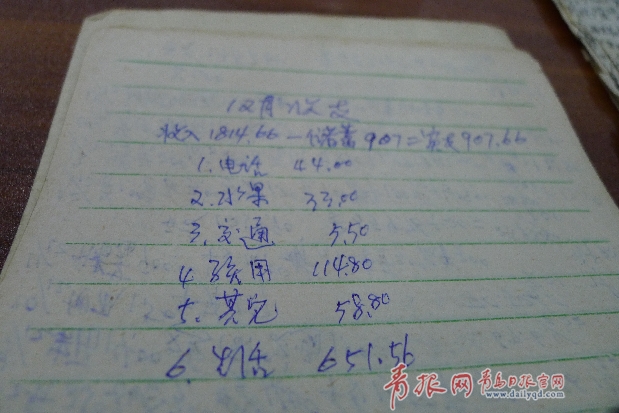 12月收支
收入1814.66-储蓄907=实支907.66
1.电话 44.00
2.水果 33.00
3.交通 5.50
4.家用 114.80
5.其它 58.80
6.生活 651.56
青报网 青岛日报官网
www.dailyqd.com